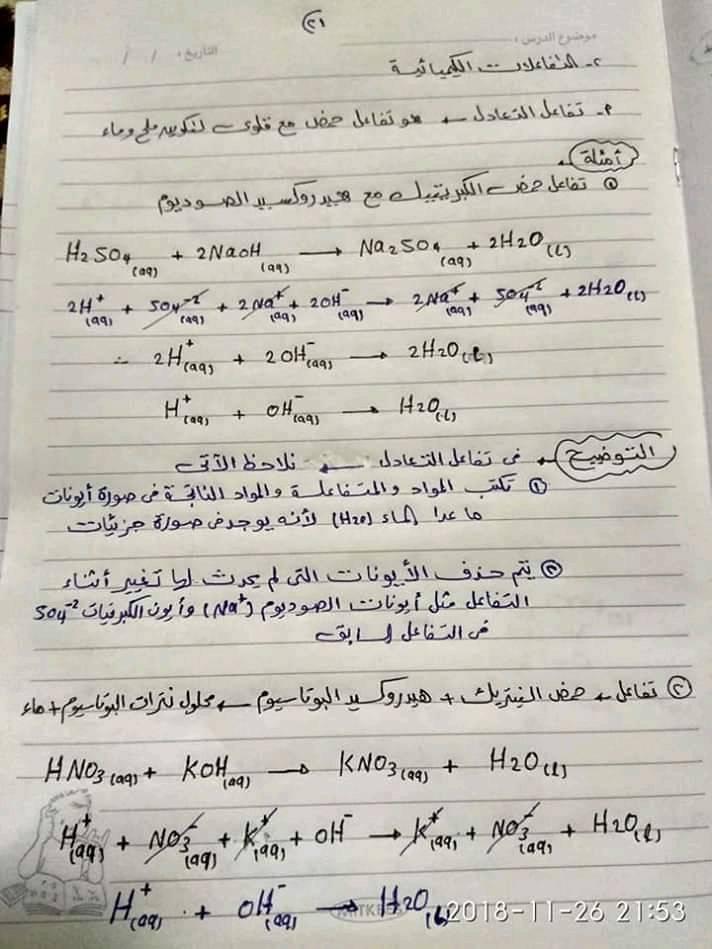 ٢١
موضوع الدرس :
التاريخ : / /
٢- التفاعلات الكيميائية
٩- تفاعل التعادل ← هو تفاعل حمض مع قلوى لتكوين ملح وماء
أمثلة
① تفاعل حمض الكبريتيك مع هيدروكسيد الصوديوم
H2SO4(aq) + 2NaOH(aq) → Na2SO4(aq) + 2H2O(l)
2H+(aq) + SO4-2(aq) + 2Na+(aq) + 2OH-(aq) → 2Na+(aq) + SO4-2(aq) + 2H2O(l)
∴ 2H+(aq) + 2OH-(aq) → 2H2O(l)
H+(aq) + OH-(aq) → H2O(l)
التوضيح ← فى تفاعل التعادل ← نلاحظ الآتى
① تكتب المواد والمتفاعلة والمواد الناتجة فى صورة أيونات
ما عدا الماء (H2O) لأنه يوجد فى صورة جزيئات
② يتم حذف الأيونات التى لم يحدث لها تغيير أثناء
التفاعل مثل أيونات الصوديوم (Na+) وأيون الكبريتات SO4-2
فى التفاعل السابق
② تفاعل ← حمض النيتريك + هيدروكسيد البوتاسيوم ← محلول نترات البوتاسيوم + ماء
HNO3(aq) + KOH(aq) → KNO3(aq) + H2O(l)
H+(aq) + NO3-(aq) + K+(aq) + OH- → K+(aq) + NO3-(aq) + H2O(l)
H+(aq) + OH-(aq) → H2O(l)
2018-11-26 21:53